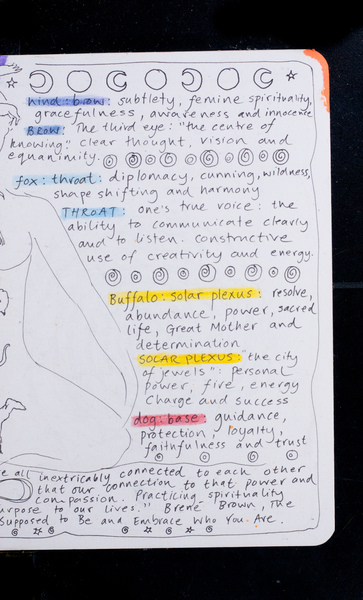 hind: brow: subtlety, femine spirituality,
gracefulness, awareness and innocence
BROW: The third eye: "the centre of
knowing": clear thought, vision and
equanimity.
fox: throat: diplomacy, cunning, wildness,
shape shifting and harmony
THROAT: one's true voice: the
ability to communicate clearly
and to listen. Constructive
use of creativity and energy.
Buffalo: solar plexus: resolve,
abundance, power, sacred
life, Great Mother and
determination
SOLAR PLEXUS: "the city
of jewels": personal
power, fire, energy
charge and success
dog: base: guidance,
protection, loyalty,
faithfulness and trust
all inextricably connected to each other
that our connection to that power and
compassion. Practicing spirituality
to our lives." Brené Brown, The
Supposed to Be and Embrace Who You Are.